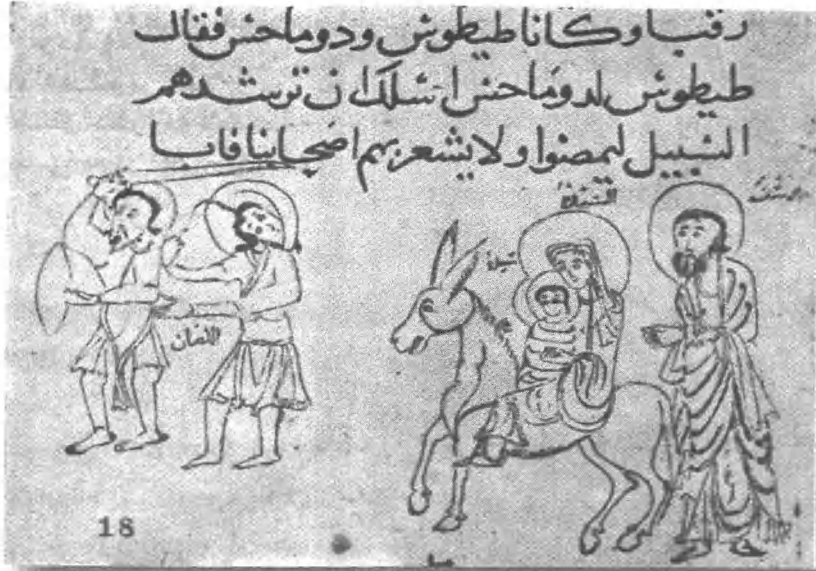 رقبا وكانا طيطوش ودوماحش فقال
طيطوش لدوماحش اشلك ان ترشدهم
الشبيل ليمضوا ولا يشعر بهم اصحابنا فابا
السيدة
اللصان
18